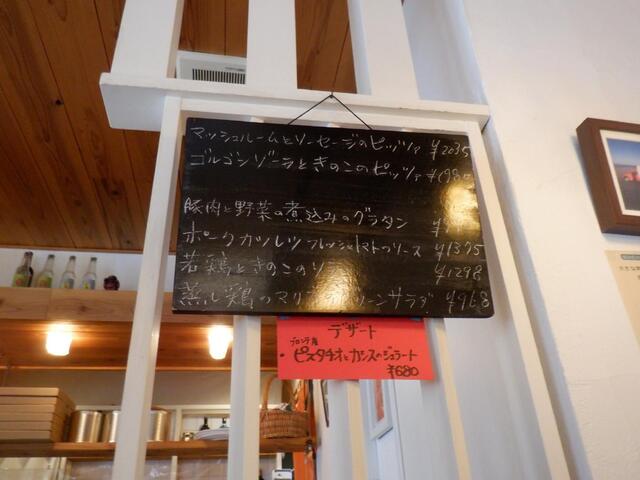 マッシュルームとソーセージのピッツァ ¥2035
ゴルゴンゾーラときのこのピッツァ ¥1980
豚肉と野菜の煮込みのグラタン
ポークカツレツ フレッシュトマトのソース ¥1375
若鶏ときのこの ¥1298
蒸し鶏のマリネ グリーンサラダ ¥968
デザート
ブロンテ産
・ピスタチオとカシスのジェラート
¥680